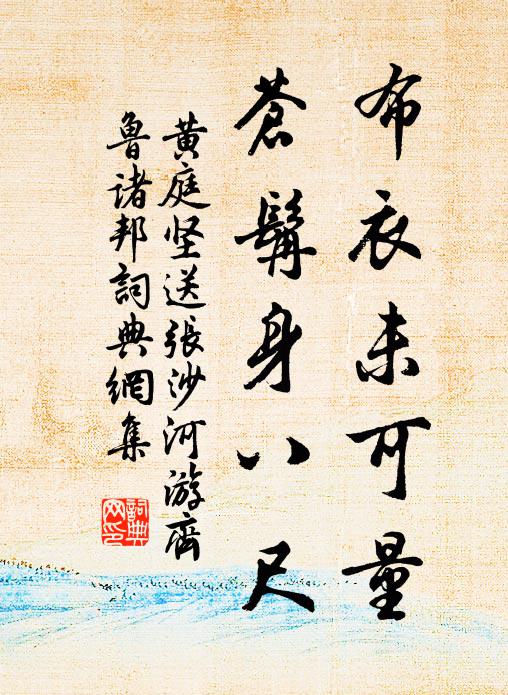 布衣未可量
蒼髯身八尺
黄庭坚送張沙河游齊
魯诸邦詞典網集
詞典
网印